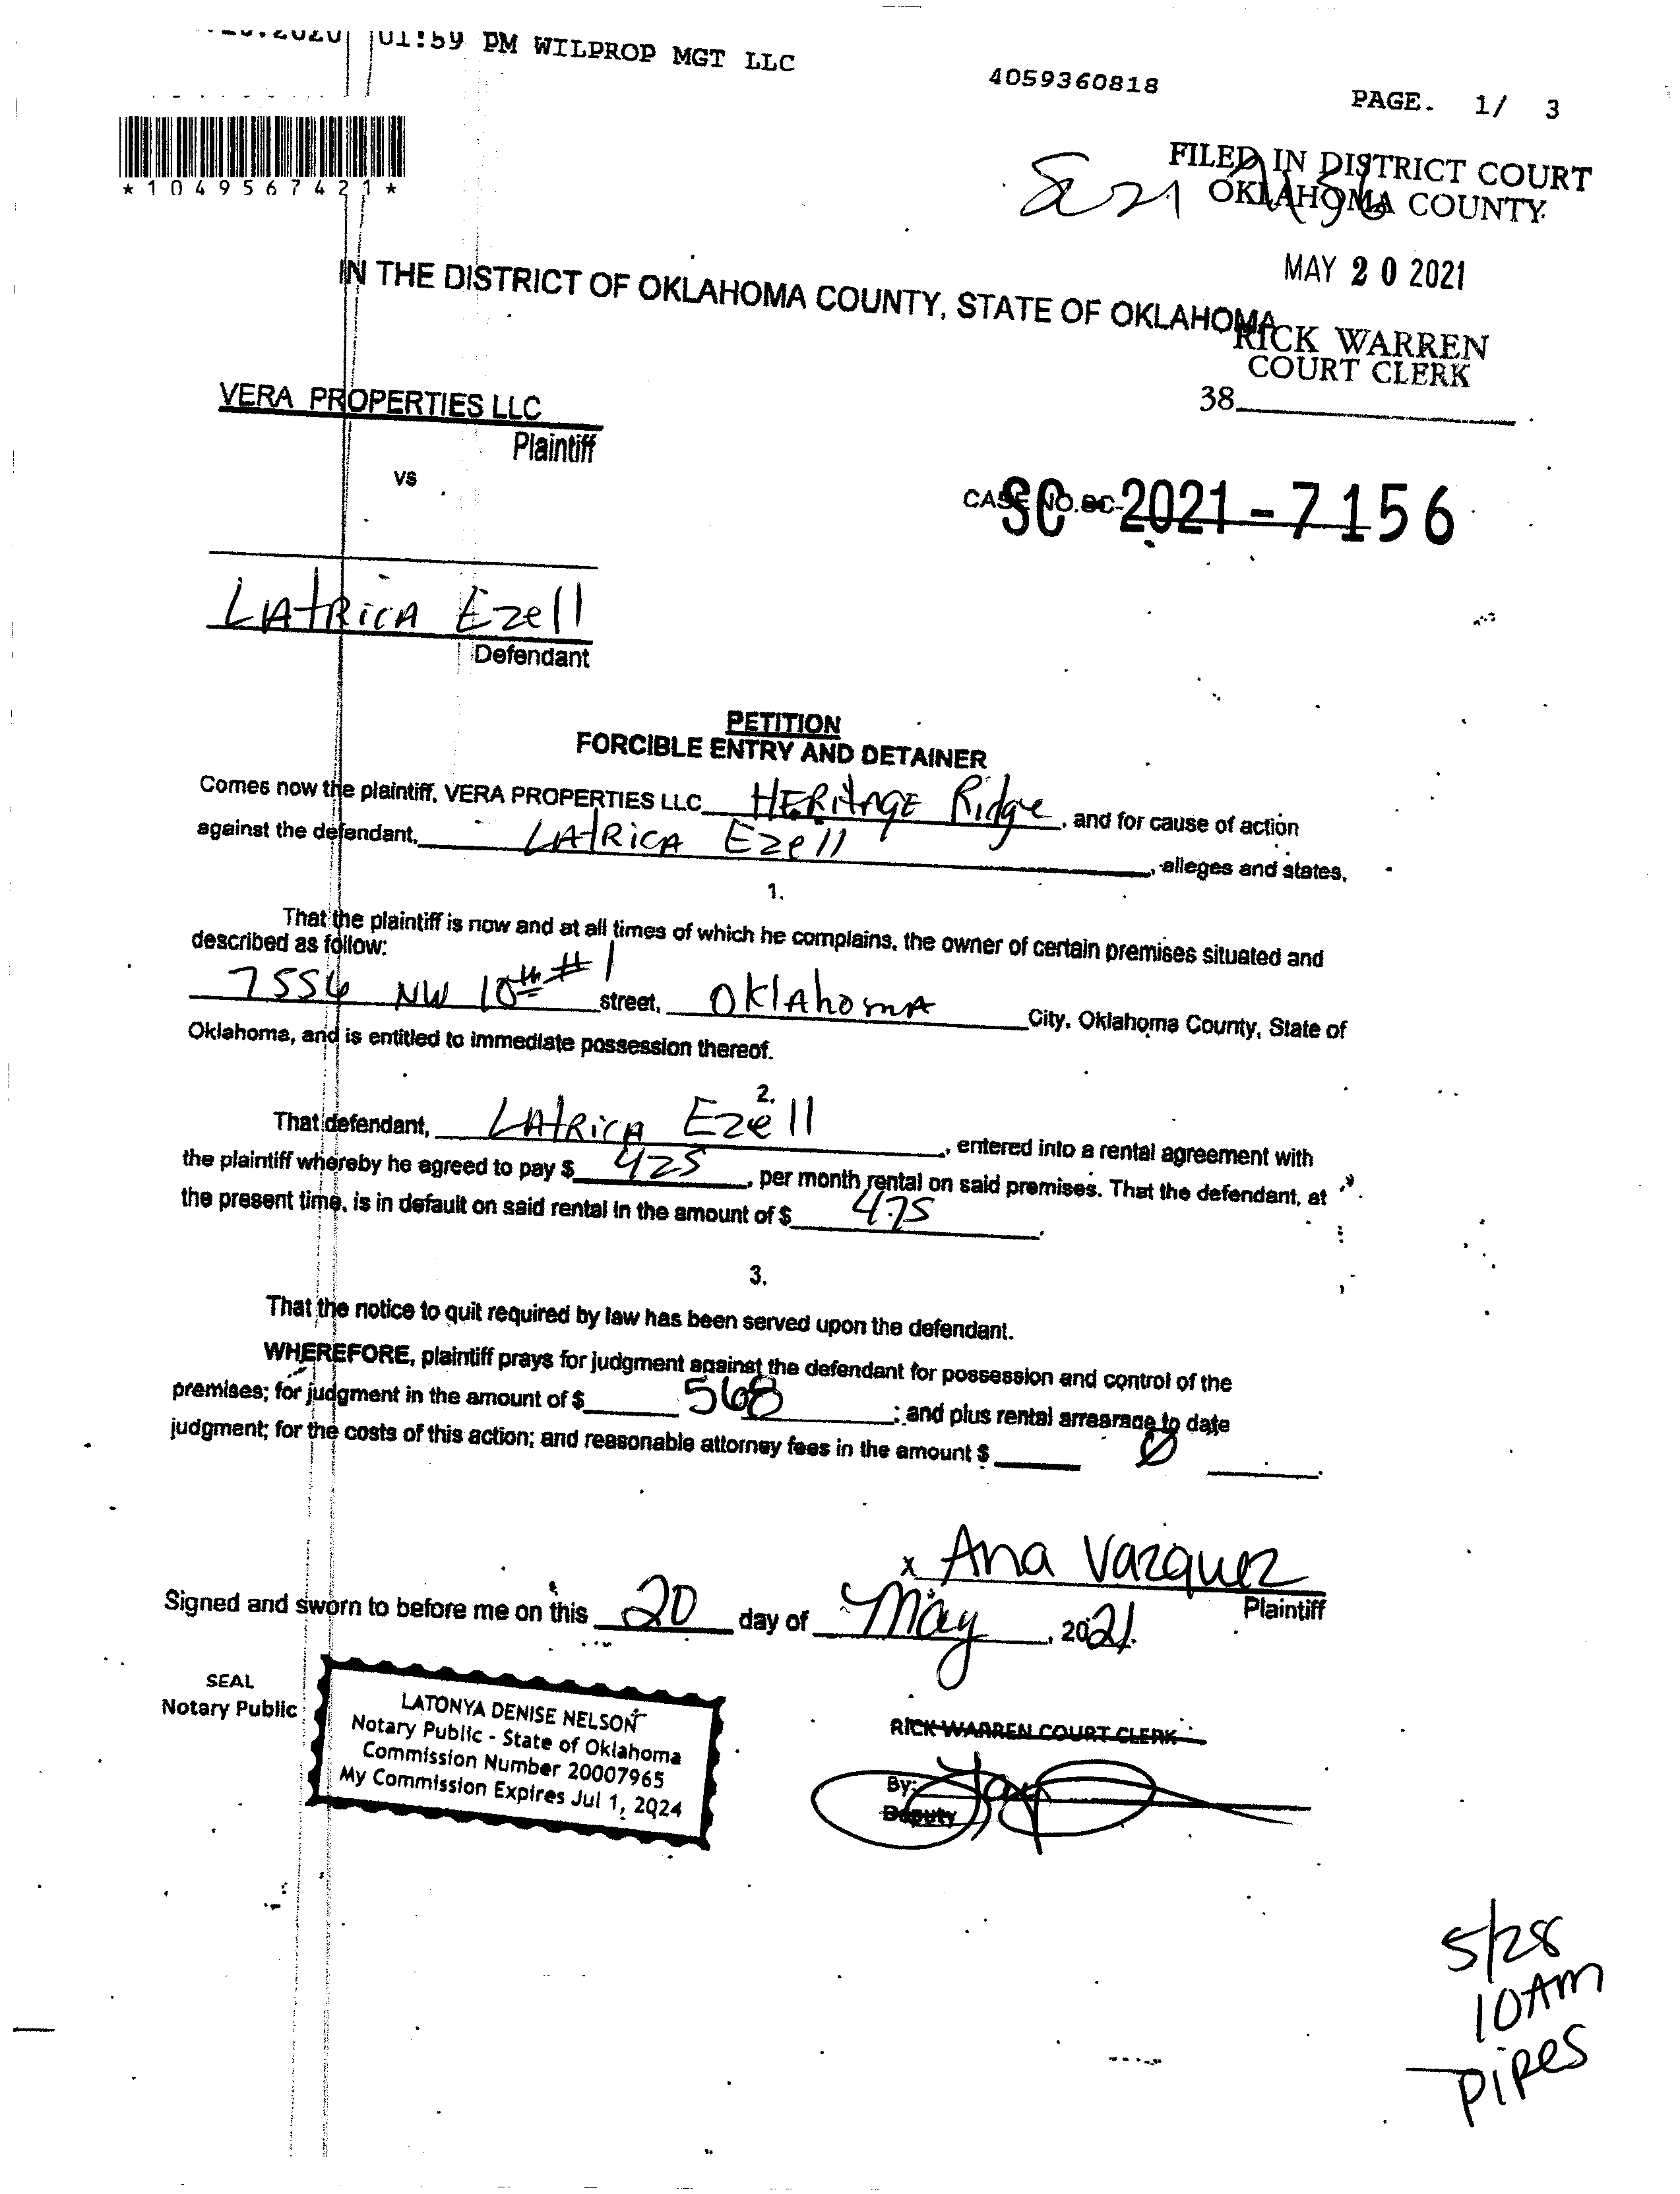 01:59 PM WILPROP MGT LLC 4059360818 PAGE. 1/ 3
*1049567421*
FILED IN DISTRICT COURT
OKLAHOMA COUNTY
MAY 20 2021
IN THE DISTRICT OF OKLAHOMA COUNTY, STATE OF OKLAHOMA
RICK WARREN
COURT CLERK
38
VERA PROPERTIES LLC
Plaintiff
vs
CASE NO. SC-
SC 2021-7156
LAtRicA Ezell
Defendant
PETITION
FORCIBLE ENTRY AND DETAINER
Comes now the plaintiff, VERA PROPERTIES LLC HERitAGE Ridge, and for cause of action
against the defendant, LAtRicA Ezell, alleges and states,
1.
That the plaintiff is now and at all times of which he complains, the owner of certain premises situated and
described as follow:
7554 NW 10th #1 street, OklAhomA City, Oklahoma County, State of
Oklahoma, and is entitled to immediate possession thereof.
2.
That defendant, LAtRicA Ezell, entered into a rental agreement with
the plaintiff whereby he agreed to pay $ 425, per month rental on said premises. That the defendant, at
the present time, is in default on said rental in the amount of $ 475.
3.
That the notice to quit required by law has been served upon the defendant.
WHEREFORE, plaintiff prays for judgment against the defendant for possession and control of the
premises; for judgment in the amount of $ 568; and plus rental arrearage to date
judgment; for the costs of this action; and reasonable attorney fees in the amount $ Ø.
x Ana Vazquez
Plaintiff
Signed and sworn to before me on this 20 day of May, 2021.
SEAL
Notary Public
LATONYA DENISE NELSON
Notary Public - State of Oklahoma
Commission Number 20007965
My Commission Expires Jul 1, 2024
RICK WARREN COURT CLERK
By:
Deputy
5/28
10AM
PIRES